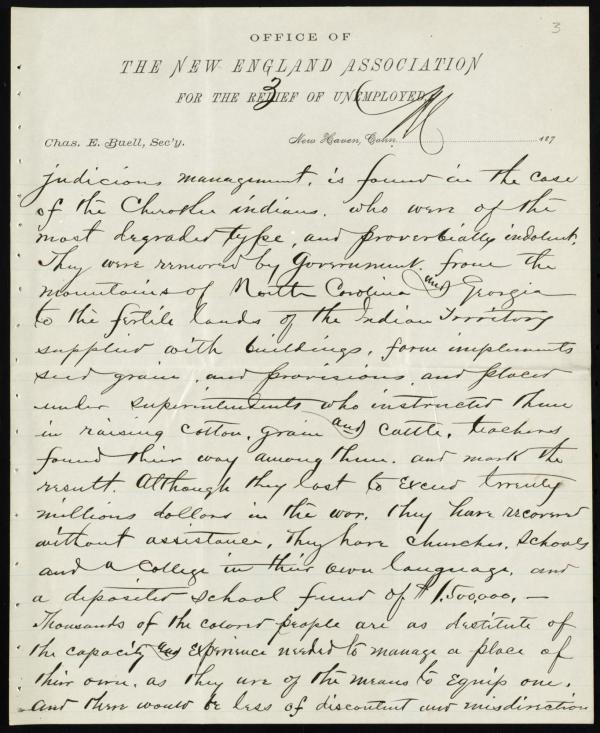 3
OFFICE OF
THE NEW ENGLAND ASSOCIATION
FOR THE RELIEF OF UNEMPLOYED.
3
Chas. E. Buell, Sec'y.
New Haven, Conn. 187
judicious management, is found in the case
of the Cherokee indians, who were of the
most degraded type, and proverbially indolent.
They were removed by Government from the
mountains of North Carolina and Georgia
to the fertile lands of the Indian Territory
supplied with buildings, farm implements
seed grain, and provisions, and placed
under superintendents who instructed them
in raising cotton, grain and cattle, teachers
found their way among them, and mark the
result. Although they lost to exceed twenty
millions dollars in the war, they have recovered
without assistance, They have churches, schools
and a College in their own language, and
a deposited school fund of $1,500,000, —
Thousands of the colored people are as destitute of
the capacity and experience needed to manage a place of
their own, as they are of the means to equip one,
and there would be less of discontent and misdirection